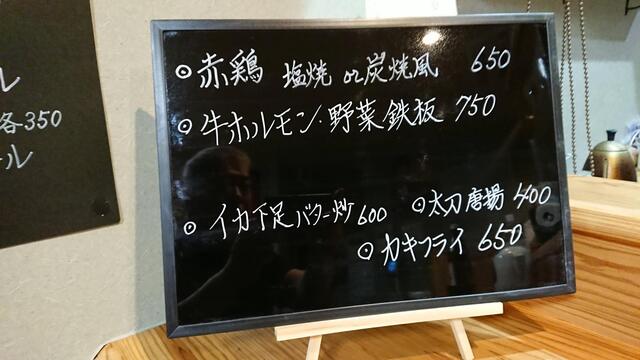 ル
各350
ール
◎赤鶏 塩焼 or 炭焼風 650
◎牛ホルモン・野菜鉄板 750
◎イカ下足バター炒600
◎太刀唐揚400
◎カキフライ 650